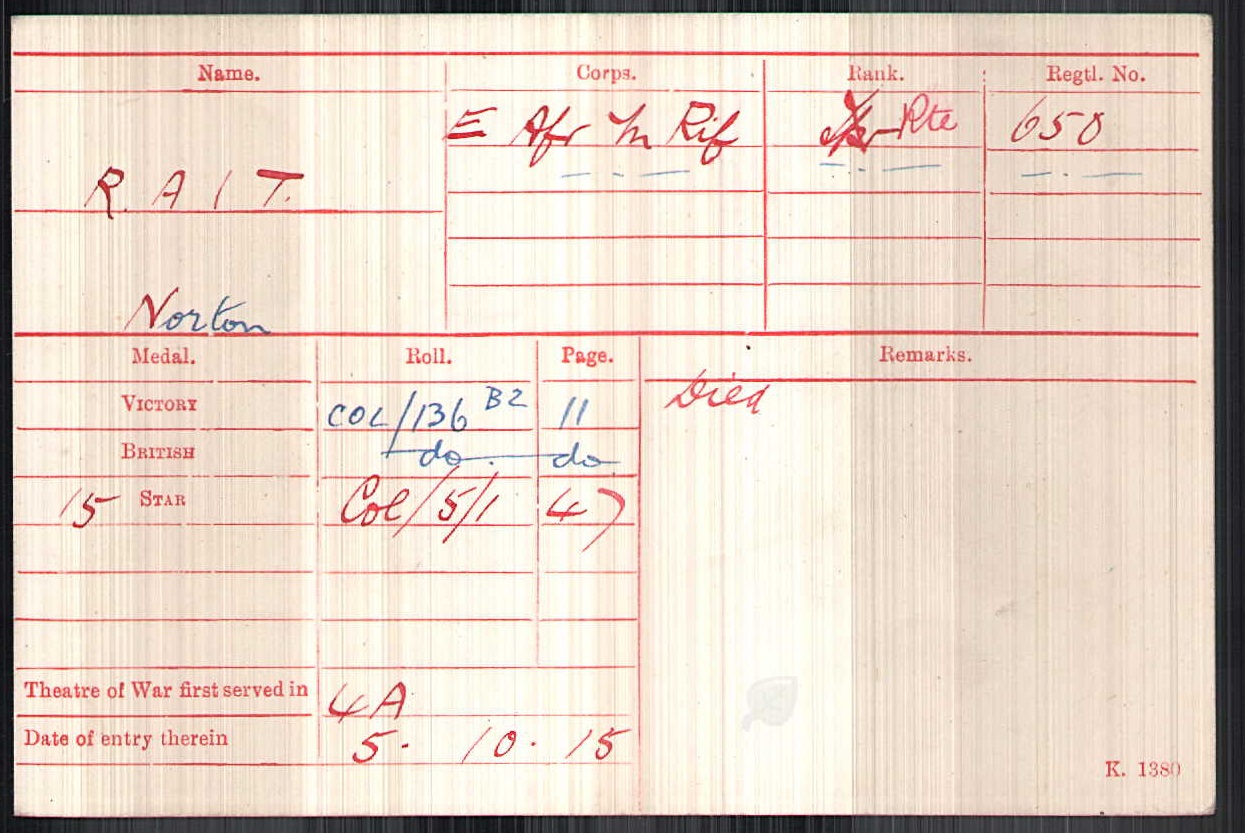 Name. Corps. Rank. Regtl. No.
E Afr M Rif Pte 658
R A I T.
Norton
Medal. Roll. Page. Remarks.
VICTORY COL/136 B2 11 Died
BRITISH do. do
15 STAR Col/5/1 47
Theatre of War first served in 4A
Date of entry therein 5. 10. 15
K. 1380